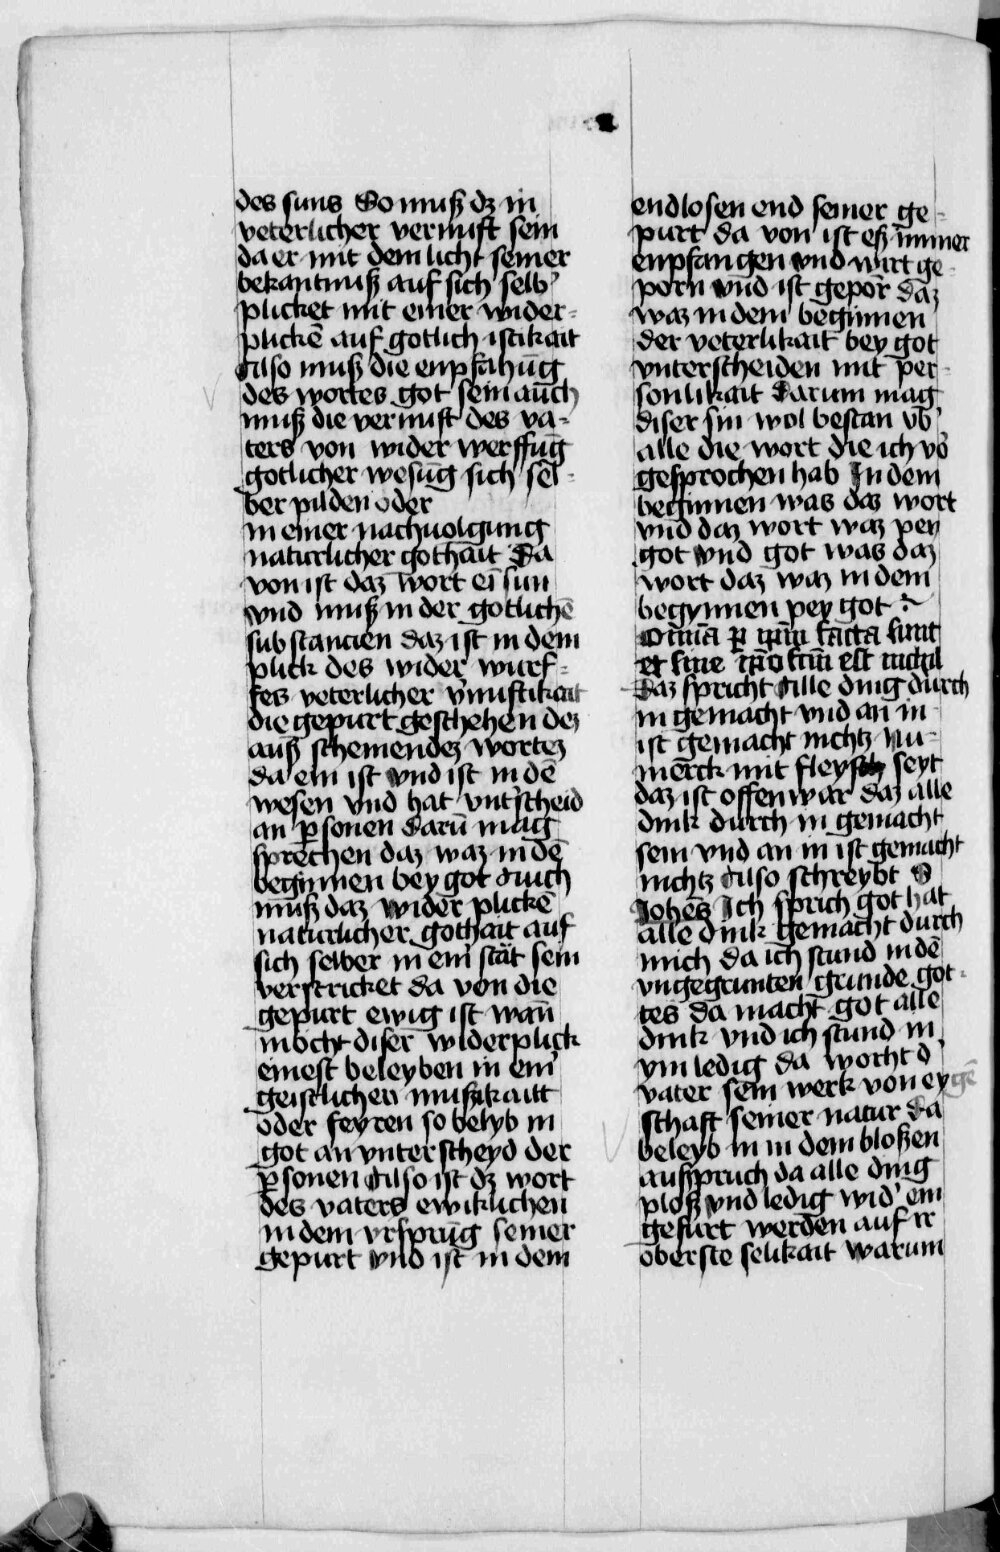 des suns So muß dz in
veterlicher vernuft sein
da er mit dem licht seiner
bekantnuß auf sich selb
plicket mit einer wider-
plickē auf gotlich istikait
Also muß die enpfahūg
des wortes got sein auch
muß die vernuft des va-
ters von wider werffūg
gotlicher wesūg sich sel-
ber pilden oder
in einer nachuolgung
naturlicher gothait Da
von ist daz wort ei sun
vnd muß in der gotlichē
substancien daz ist in dem
plick des wider wurf-
fes veterlicher v̾nuftikait
die gepurt geschehen dez
auß schemendez wortez
da ein ist vnd ist in dē
wesen vnd hat vnt̾scheid
an ꝑsonen darū mag
sprechen daz waz in dē
beginnen bey got Auch
muß daz wider plickē
naturlicher gothait auf
sich selber in ein stät sein
verstricket da von die
gepurt ewig ist wañ
mocht diser widerplick
einest beleyben in ein̾
geistlichen mußikaitt
oder feyren so belyb in
got an vnterscheyd der
ꝑsonen Also ist dz wort
des vaters ewiklichen
in dem vrsprūg seiner
gepurt vnd ist in dem
endlosen end seiner ge-
purt da von ist eß immer
enpfangen vnd wirt ge-
porn vnd ist gepor̄ daz
waz in dem beginnen
der veterlikait bey got
vnterscheiden mit per-
sonlikait Darum mag
diser sin wol bestan vb̾
alle die wort die ich vō
gesprochen hab In dem
beginnen was daz wort
vnd daz wort waz pey
got vnd got was daz
wort daz waz in dem
begynnen pey got
Omīa ꝑ ipm̄ facta sunt
et sine ipo factū est nichil
Daz spricht Alle ding durch
in gemacht vnd an in
ist gemacht nichtz Nu-
merck mit fleysch seyt
daz ist offenwar daz alle
dink durch in gemacht
sein vnd an in ist gemacht
nichtz Also schreybt S
Johēs Ich sprich got hat
alle dink gemacht durch
mich da ich stund in dē
vngegrunten grunde got-
tes da macht got alle
dink vnd ich stund in
ym ledig da worht d̾
vater sein werk von eygē
schaft seiner natur da
beleyb in in dem bloßen
außpruch da alle ding
ploß vnd ledig wid̾ ein
gefurt werden auf ir
oberste selikait warum